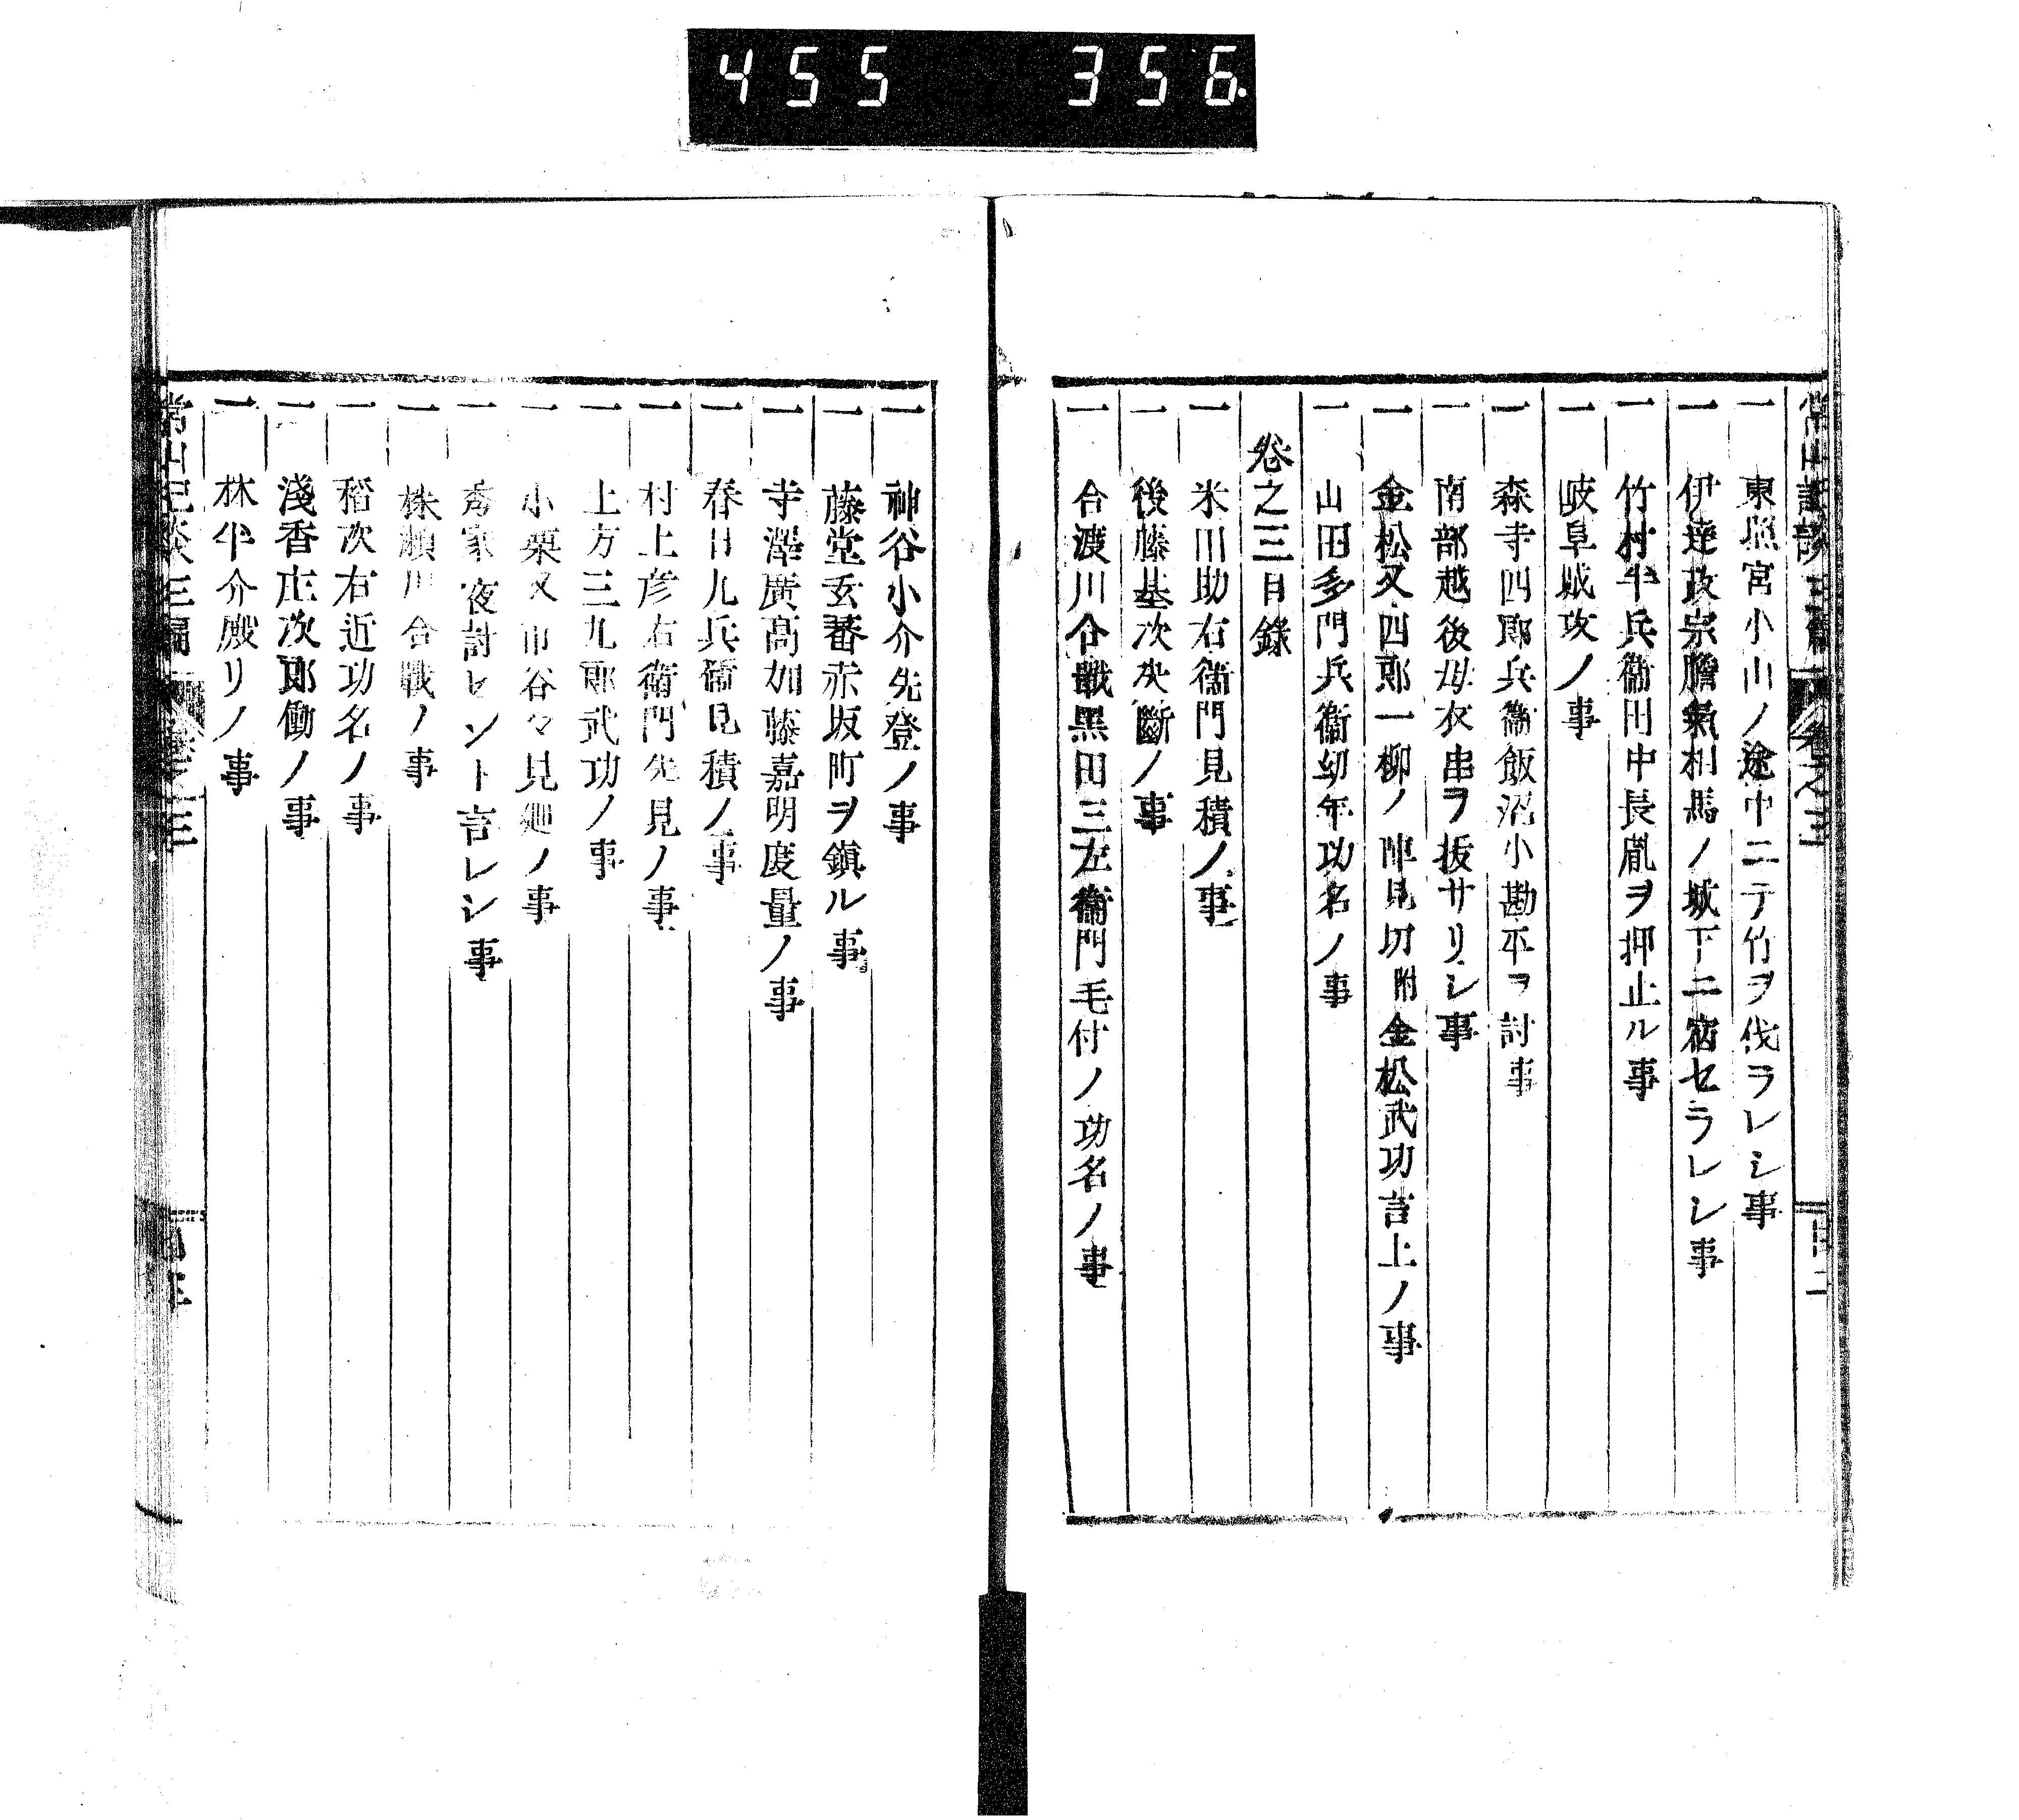 455 356.
一 東照宮小山ノ途中ニテ竹ヲ伐ラレシ事
一 伊達政宗膽氣相馬ノ城下ニ宿セラレシ事
一 竹村半兵衞田中長胤ヲ押止ル事
一 岐阜城攻ノ事
一 森寺四郎兵衞飯沼小勘平ヲ討事
一 南部越後母衣串ヲ抜サリシ事
一 金松又四郎一柳ノ陣見切附金松武功言上ノ事
一 山田多門兵衞幼年功名ノ事
卷之三目錄
一 米川助右衞門見積ノ事
一 後藤基次決斷ノ事
一 合渡川合戰黑田三左衞門毛付ノ功名ノ事
一 神谷小介先登ノ事
一 藤堂玄蕃赤坂町ヲ鎭ル事
一 寺澤廣髙加藤嘉明度量ノ事
一 春日九兵衞見積ノ事
一 村上彦右衞門先見ノ事
一 上方三九郎武功ノ事
一 小栗又市谷々見廻ノ事
一 秀家夜討セント言レシ事
一 株瀬川合戰ノ事
一 稻次右近功名ノ事
一 淺香庄次郎働ノ事
一 林半介殿リノ事
常山紀談三編 卷之三